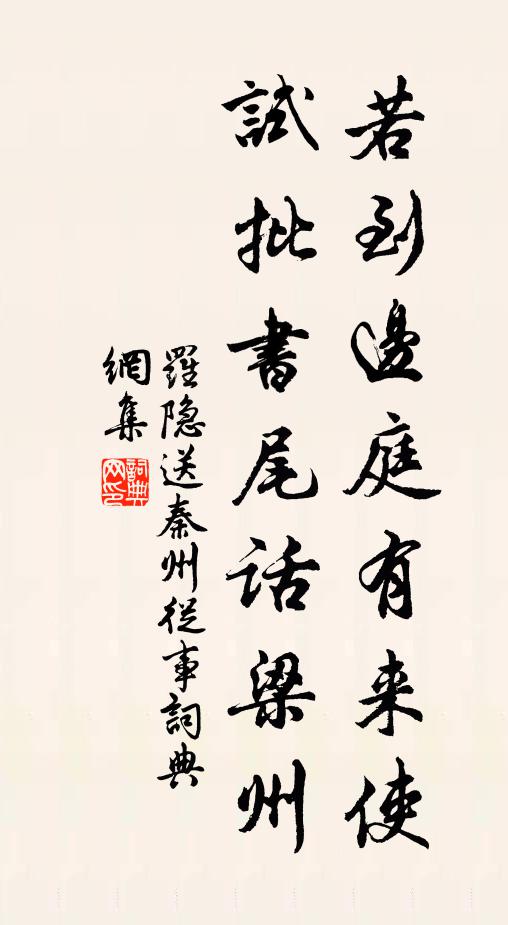 若到邊庭有来使
試批書尾話梁州
羅隐送秦州從事詞典
網集
詞典網印